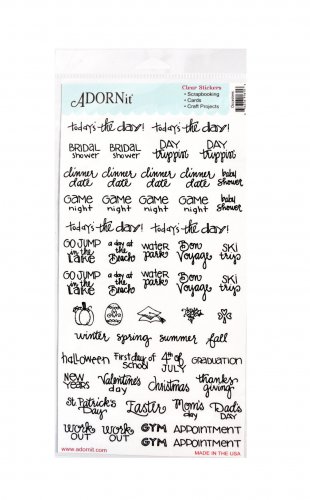 ADORNit
Clear Stickers
• Scrapbooking
• Cards
• Craft Projects
today's the day! today's the day!
BRIDAL shower BRIDAL shower DAY trippin' DAY trippin'
dinner date dinner date dinner date dinner date baby shower
GAME night GAME night GAME night GAME night baby shower
today's the day! today's the day!
GO JUMP in the Lake a day at the Beach water park Bon Voyage SKI trip
GO JUMP in the Lake a day at the Beach water park Bon Voyage SKI trip
winter spring summer fall
halloween First day of school 4th of JULY GRADUATION
NEW YEARS Valentine's day Christmas thanksgiving
St. Patrick's Day Easter Mom's day Dad's DAY
WORK OUT WORK OUT GYM APPOINTMENT
WORK OUT WORK OUT GYM APPOINTMENT
www.adornit.com MADE IN THE USA